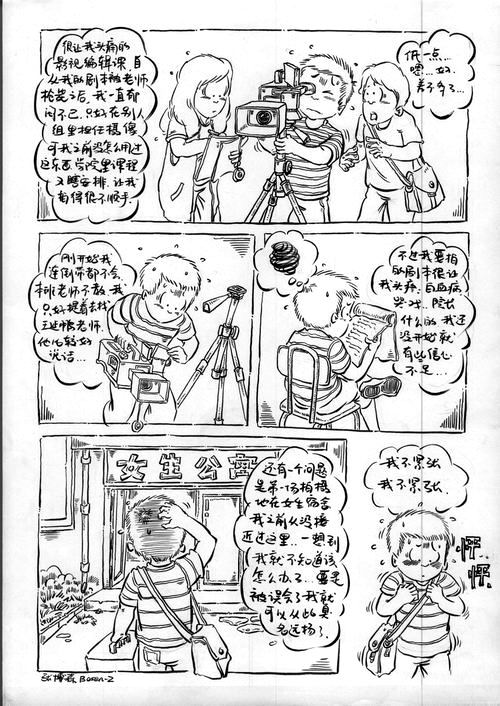 很让我头痛的
影视编辑课,自
从我的剧本被老师
枪毙之后,我一直郁
闷不已.只好在别人
组里担任摄像
可我之前没怎么用过
这东西.学院里课程
又瞎安排.让我
自得很不顺手.
低一点...
嗯...好.
差不多了...
刚开始我
连倒带都不会.
老师不教.我
只好提着去找
王进鹏老师.
他比较好
说话...
不过我要拍
的剧本很让
我头疼.白血病
哭戏.院长
什么的.我还
没开始就
有些信心
不足...
女生公寓
还有一个问题
是第一场拍摄
地在女生宿舍
我之前从没接
近过这里.一想到
我就不知道该
怎么办了...要是
被误会了我就
可以从此臭
名远扬了.
我不紧张
我不紧张.
怦
怦.
Boren-Z